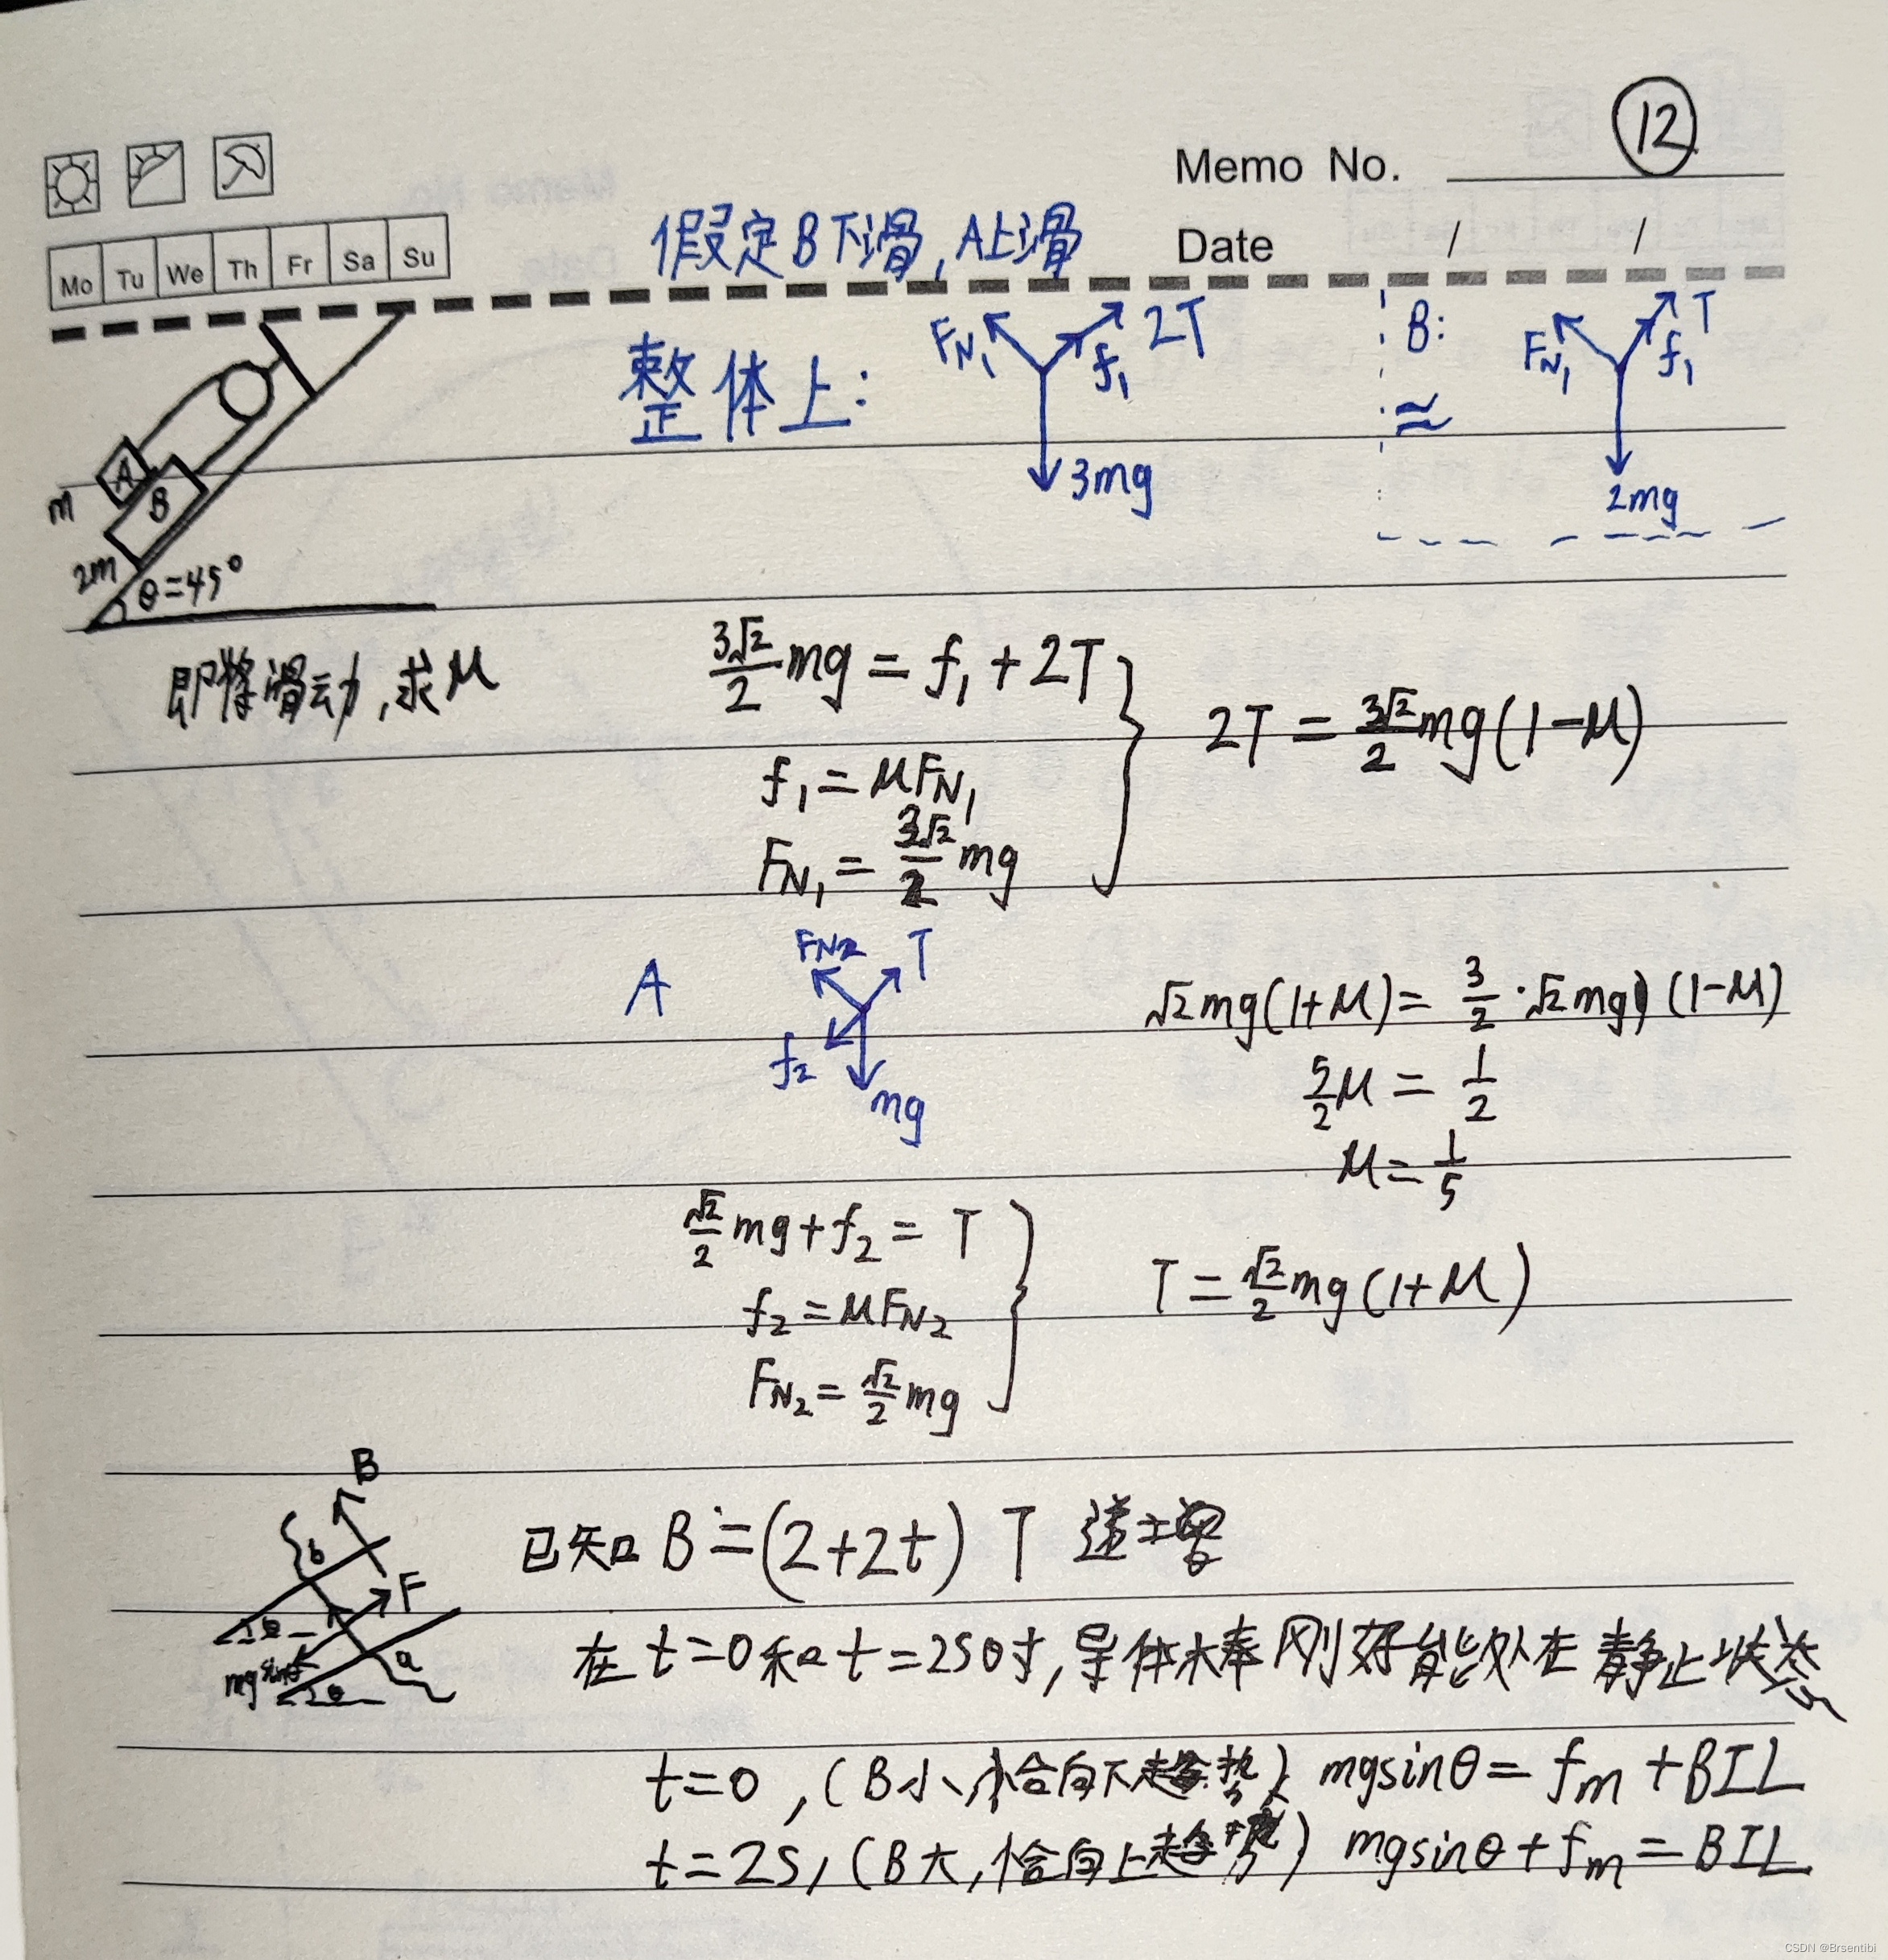 12
Memo No.
Mo Tu We Th Fr Sa Su
Date / /
假定B下滑,A上滑
整体上:
F_N₁ 2T f₁ 3mg
B:
≃
F_N₁ T f₁ 2mg
A B
m
2m
θ=45°
即将滑动,求μ
3√2/2 mg = f₁ + 2T
f₁ = μF_N₁
F_N₁ = 3√2/2 mg
2T = 3√2/2 mg(1-μ)
A
F_N₂ T
f₂ mg
√2mg(1+μ) = 3/2·√2mg(1-μ)
5/2 μ = 1/2
μ = 1/5
√2/2 mg + f₂ = T
f₂ = μF_N₂
F_N₂ = √2/2 mg
T = √2/2 mg(1+μ)
B
b
F
θ
mgsinθ
a
θ
已知 B = (2+2t) T 递增
在 t=0和t=2s时,导体棒刚好能处在静止状态
t=0,(B小,恰向下趋势) mgsinθ = fm + BIL
t=2s,(B大,恰向上趋势) mgsinθ + fm = BIL
CSDN @Brsentibi